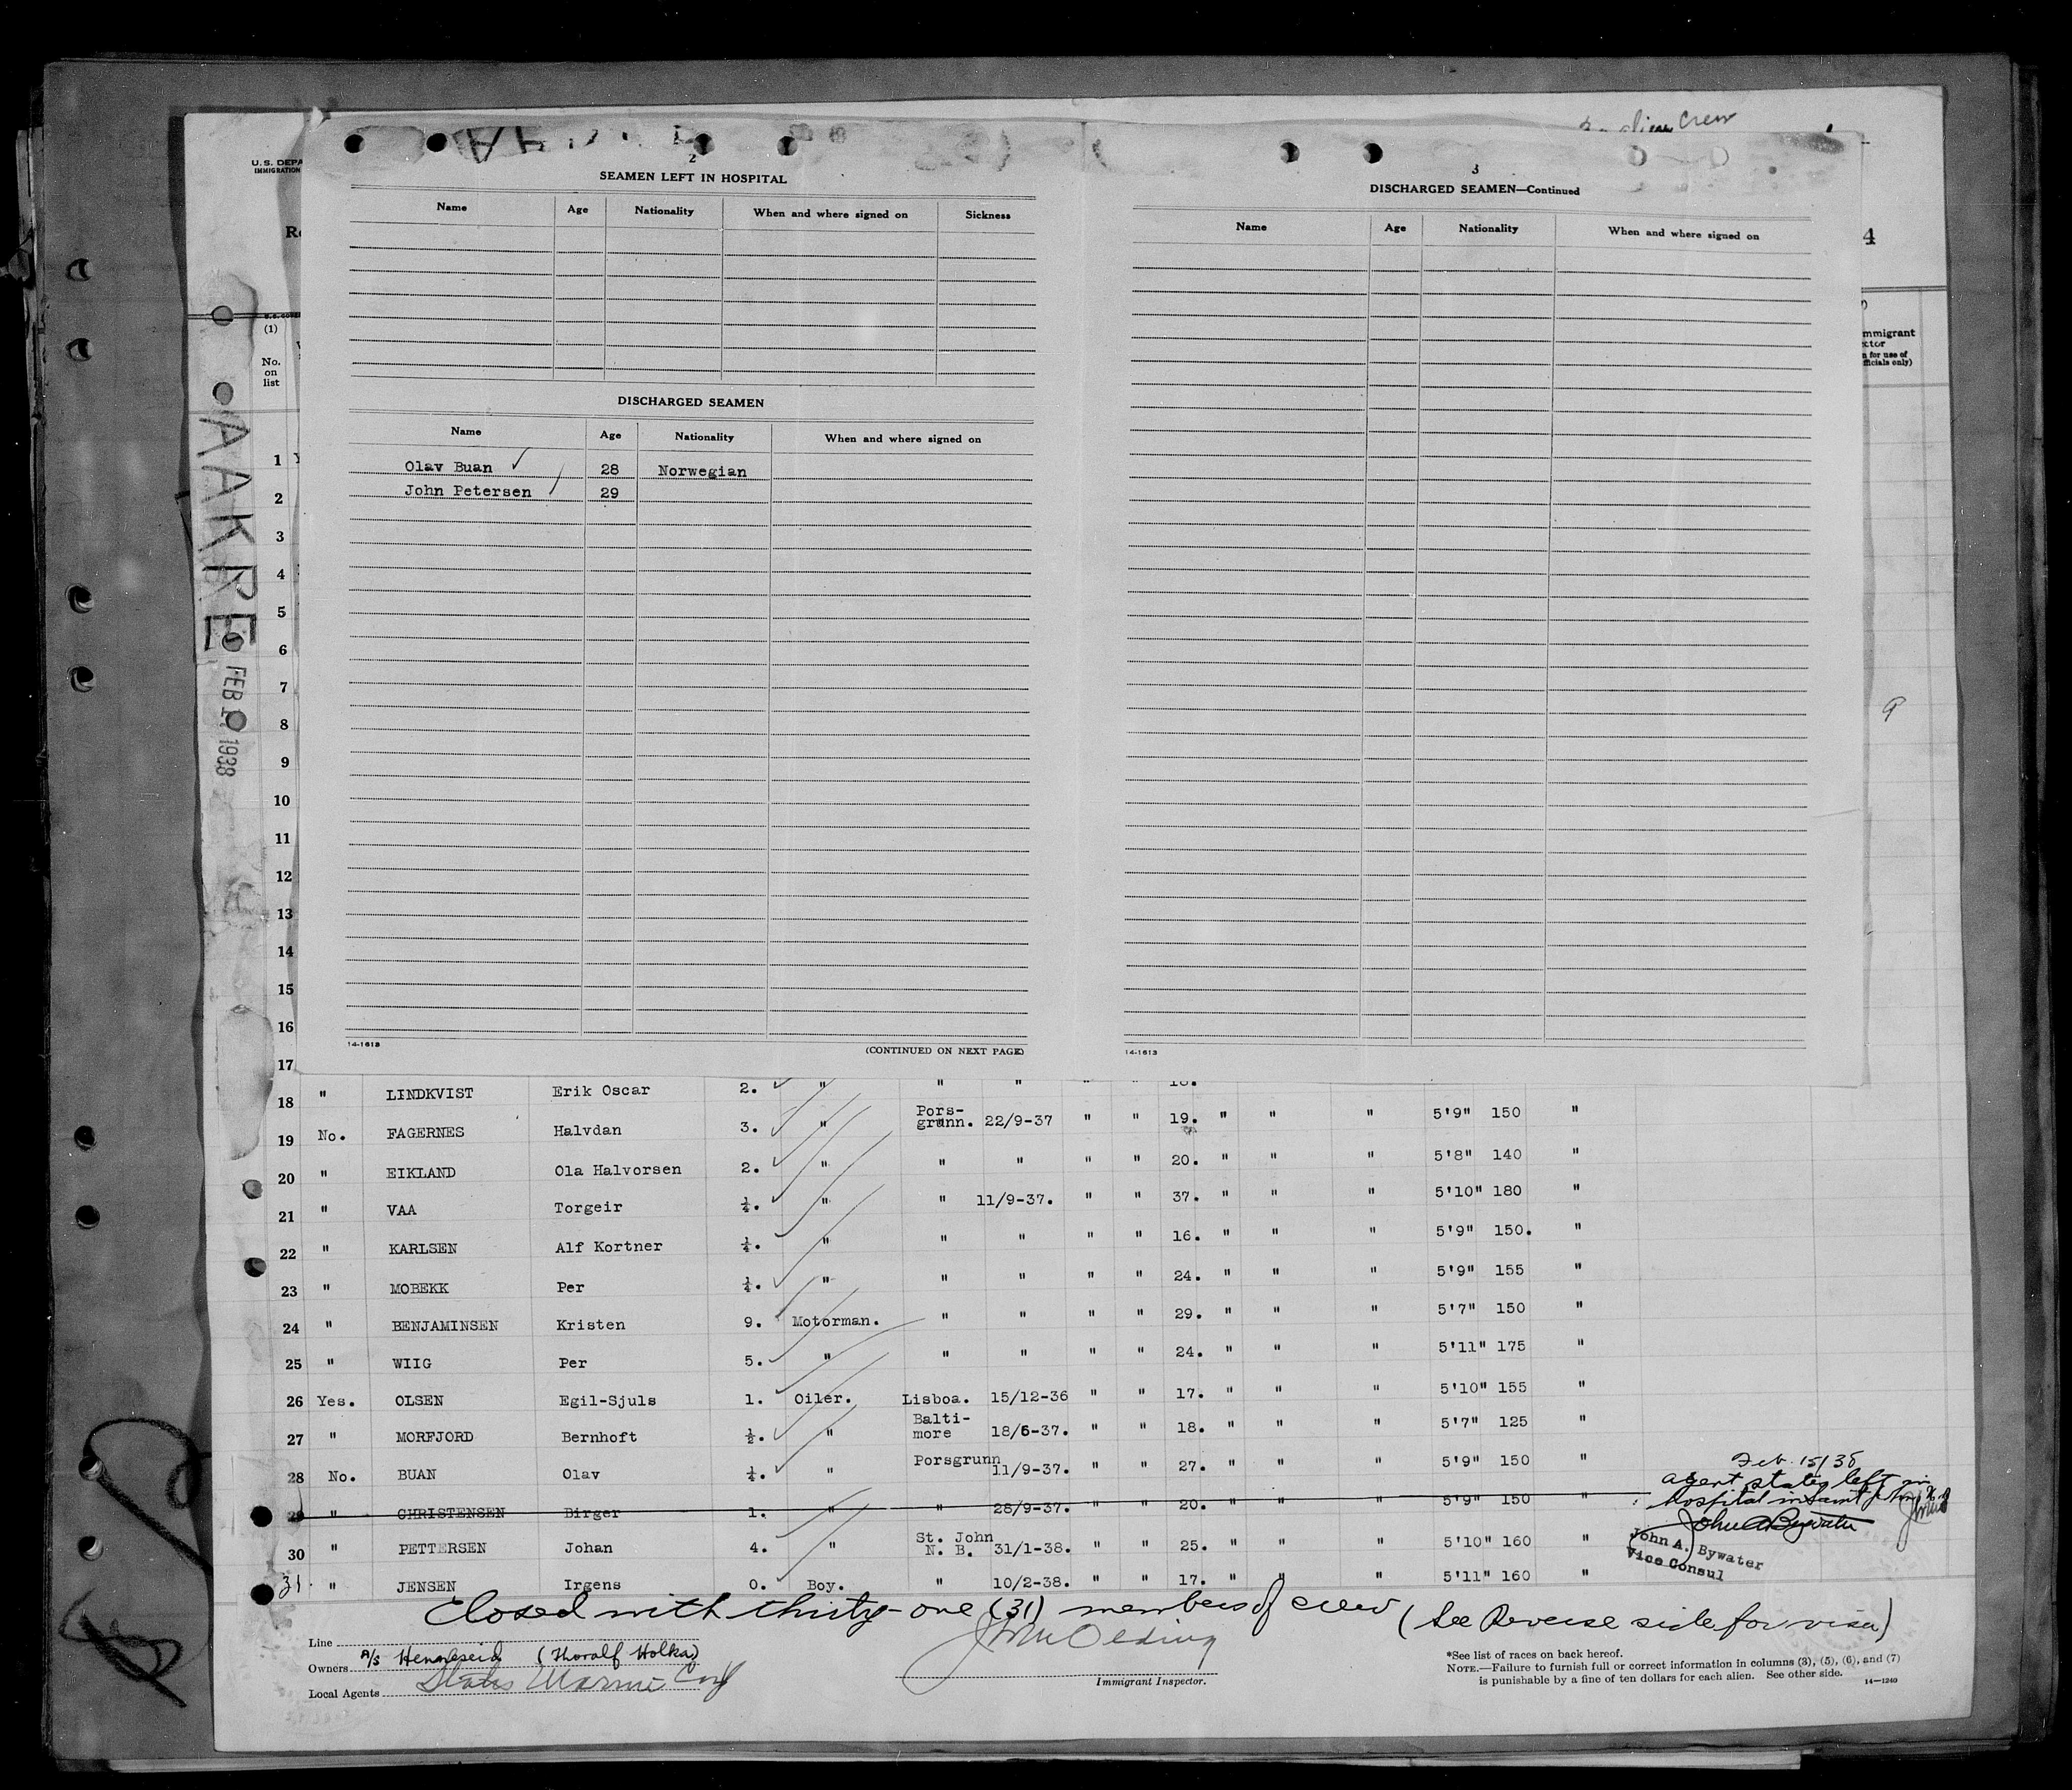 U.S. DEPA
IMMIGRATION
crew
4
(1)
No.
on
list
AAKRE
FEB 1 1938
2
SEAMEN LEFT IN HOSPITAL
Name Age Nationality When and where signed on Sickness
DISCHARGED SEAMEN
Name Age Nationality When and where signed on
Olav Buan ✓ 28 Norwegian
John Petersen / 29
14-1613
(CONTINUED ON NEXT PAGE)
3
DISCHARGED SEAMEN—Continued
Name Age Nationality When and where signed on
14-1613
mmigrant
ctor
n for use of
fficials only)
9
1
2
3
4
5
6
7
8
9
10
11
12
13
14
15
16
17
18 " LINDKVIST Erik Oscar 2. " " " " " 18.
19 No. FAGERNES Halvdan 3. " Pors-grunn. 22/9-37 " " 19. " " " 5'9" 150 "
20 " EIKLAND Ola Halvorsen 2. " " " " " 20. " " " 5'8" 140 "
21 " VAA Torgeir ¼. " " 11/9-37. " " 37. " " " 5'10" 180 "
22 " KARLSEN Alf Kortner ¼. " " " " " 16. " " " 5'9" 150. "
23 " MOBEKK Per ¼. " " " " " 24. " " " 5'9" 155 "
24 " BENJAMINSEN Kristen 9. Motorman. " " " " 29. " " " 5'7" 150 "
25 " WIIG Per 5. " " " " " 24. " " " 5'11" 175 "
26 Yes. OLSEN Egil-Sjuls 1. Oiler. Lisboa. 15/12-36 " " 17. " " " 5'10" 155 "
27 " MORFJORD Bernhoft ½. " Balti-more 18/6-37. " " 18. " " " 5'7" 125 "
28 No. BUAN Olav ¼. " Porsgrunn 11/9-37. " " 27. " " " 5'9" 150 "
29 " CHRISTENSEN Birger 1. " " 28/9-37. " " 20. " " " 5'9" 150 "
30 " PETTERSEN Johan 4. " St. John N. B. 31/1-38. " " 25. " " " 5'10" 160 "
31. " JENSEN Irgens 0. Boy. " 10/2-38. " " 17. " " " 5'11" 160 "
Feb. 15/38
agent states left in
hospital in Saint John N.B
John A Bywater
John A. Bywater
Vice Consul
Closed with thirty-one (31) members of crew (See Reverse side for visa)
Line
Owners A/s Hennseid (Thoralf Holka)
Local Agents States Marine Corp
Immigrant Inspector.
*See list of races on back hereof.
NOTE.—Failure to furnish full or correct information in columns (3), (5), (6), and (7)
is punishable by a fine of ten dollars for each alien. See other side.
14—1240